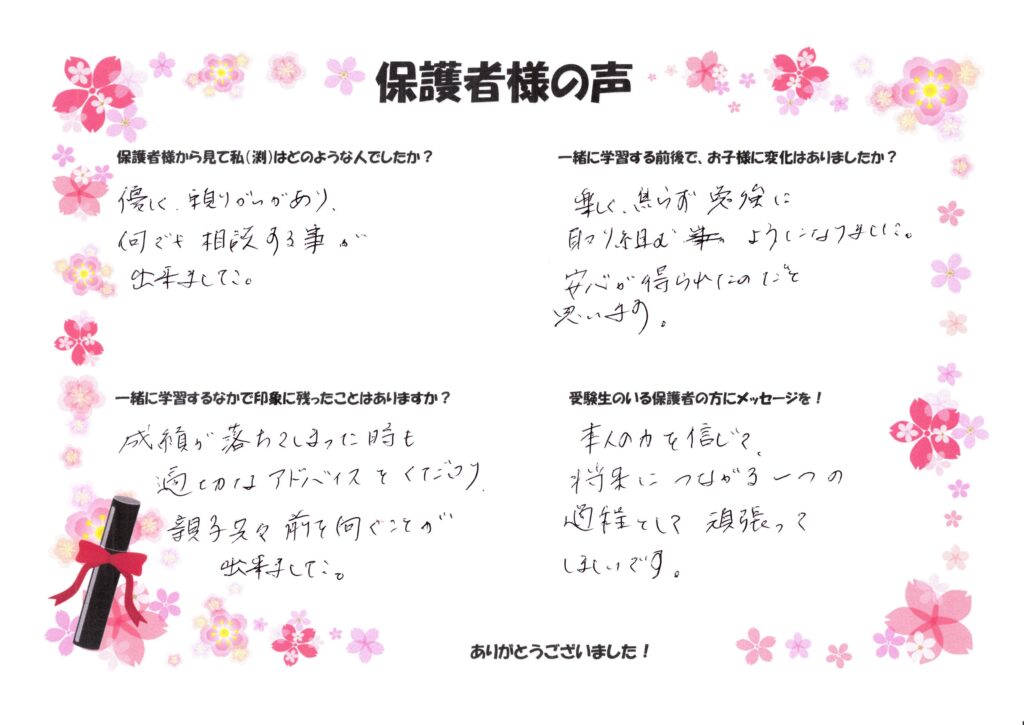 保護者様の声
保護者様から見て私(渕)はどのような人でしたか?
優しく、頼りがいがあり、
何でも相談する事が
出来ました。
一緒に学習する前後で、お子様に変化はありましたか?
楽しく、焦らず勉強に
取り組むようになりました。
安心が得られたのだと
思います。
一緒に学習するなかで印象に残ったことはありますか?
成績が落ちてしまった時も
適切なアドバイスをくださり、
親子共々前を向くことが
出来ました。
受験生のいる保護者の方にメッセージを!
本人の力を信じて、
将来につながる一つの
過程として頑張って
ほしいです。
ありがとうございました!